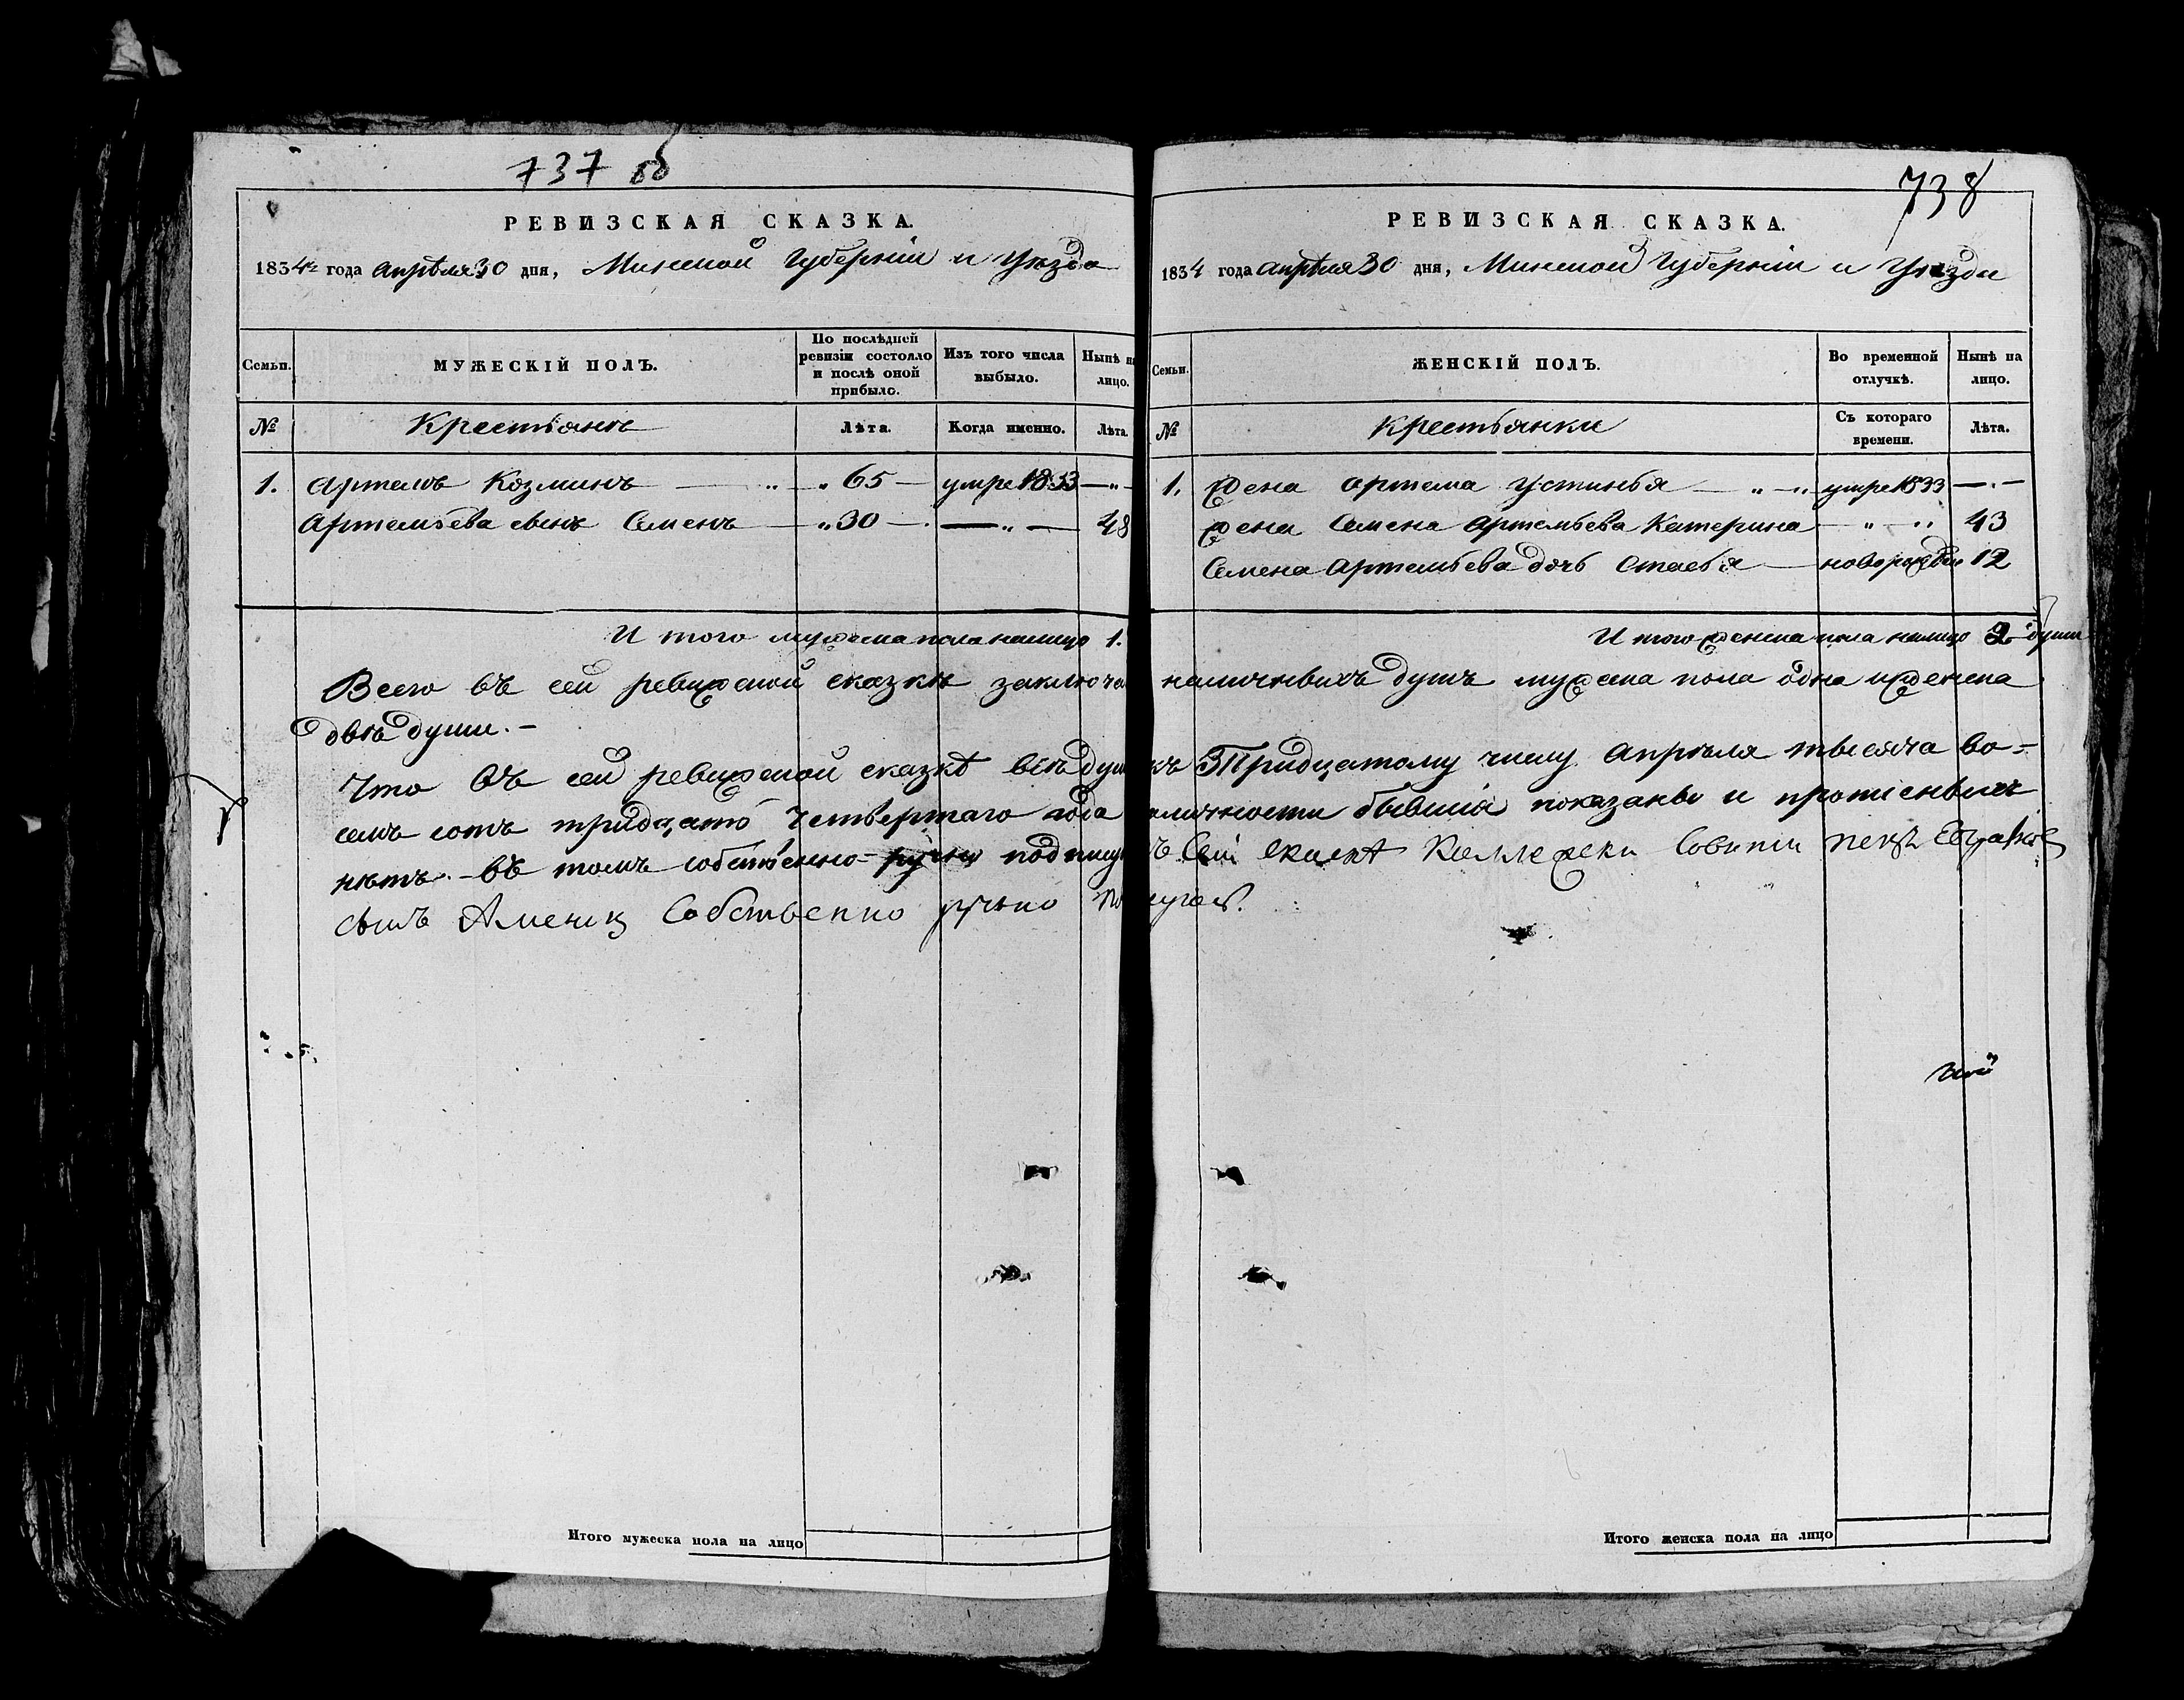 737 об
РЕВИЗСКАЯ СКАЗКА.
1834 года апрѣля 30 дня, Минской Губерніи и Уѣзда
Семьи.
МУЖЕСКІЙ ПОЛЪ.
По послѣдней ревизіи состояло и послѣ оной прибыло.
Изъ того числа выбыло.
Нынѣ на лицо.
№
Крестьянъ
Лѣта.
Когда именно.
Лѣта.
1. Артемъ Козминъ — „ — „ 65 — умре 1833 — „ —
Артемьева сынъ Семенъ — „ 30 — . — „ — 48
И того мужеска пола налицо 1.
Всего въ сей ревижской сказкѣ заключа
двѣ души. —
Что въ сей ревижской сказкѣ всѣ душ
семъ сотъ тридцатъ четвертаго года
нѣтъ. — въ томъ собственно-ручно подпису
сынъ Собственно ручно
Итого мужеска пола на лицо
738
РЕВИЗСКАЯ СКАЗКА.
1834 года апрѣля 30 дня, Минской Губерніи и Уѣзда
Семьи.
ЖЕНСКІЙ ПОЛЪ.
Во временной отлучкѣ.
Нынѣ на лицо.
№
Крестьянки
Съ котораго времени.
Лѣта.
1. Жена Артема Устинья — „ — „ умре 1833 — „ —
Жена Семена Артемьева Катерина — „ — „ 43
Семена Артемьева дочь Стасья — новорожден 12
И того женска пола налицо 2 души
наличныхъ душъ мужеска пола одна и женска
къ Тридцатому числу апрѣля тысяча во-
аличности бывшіа показаны и прописныхъ
Итого женска пола на лицо